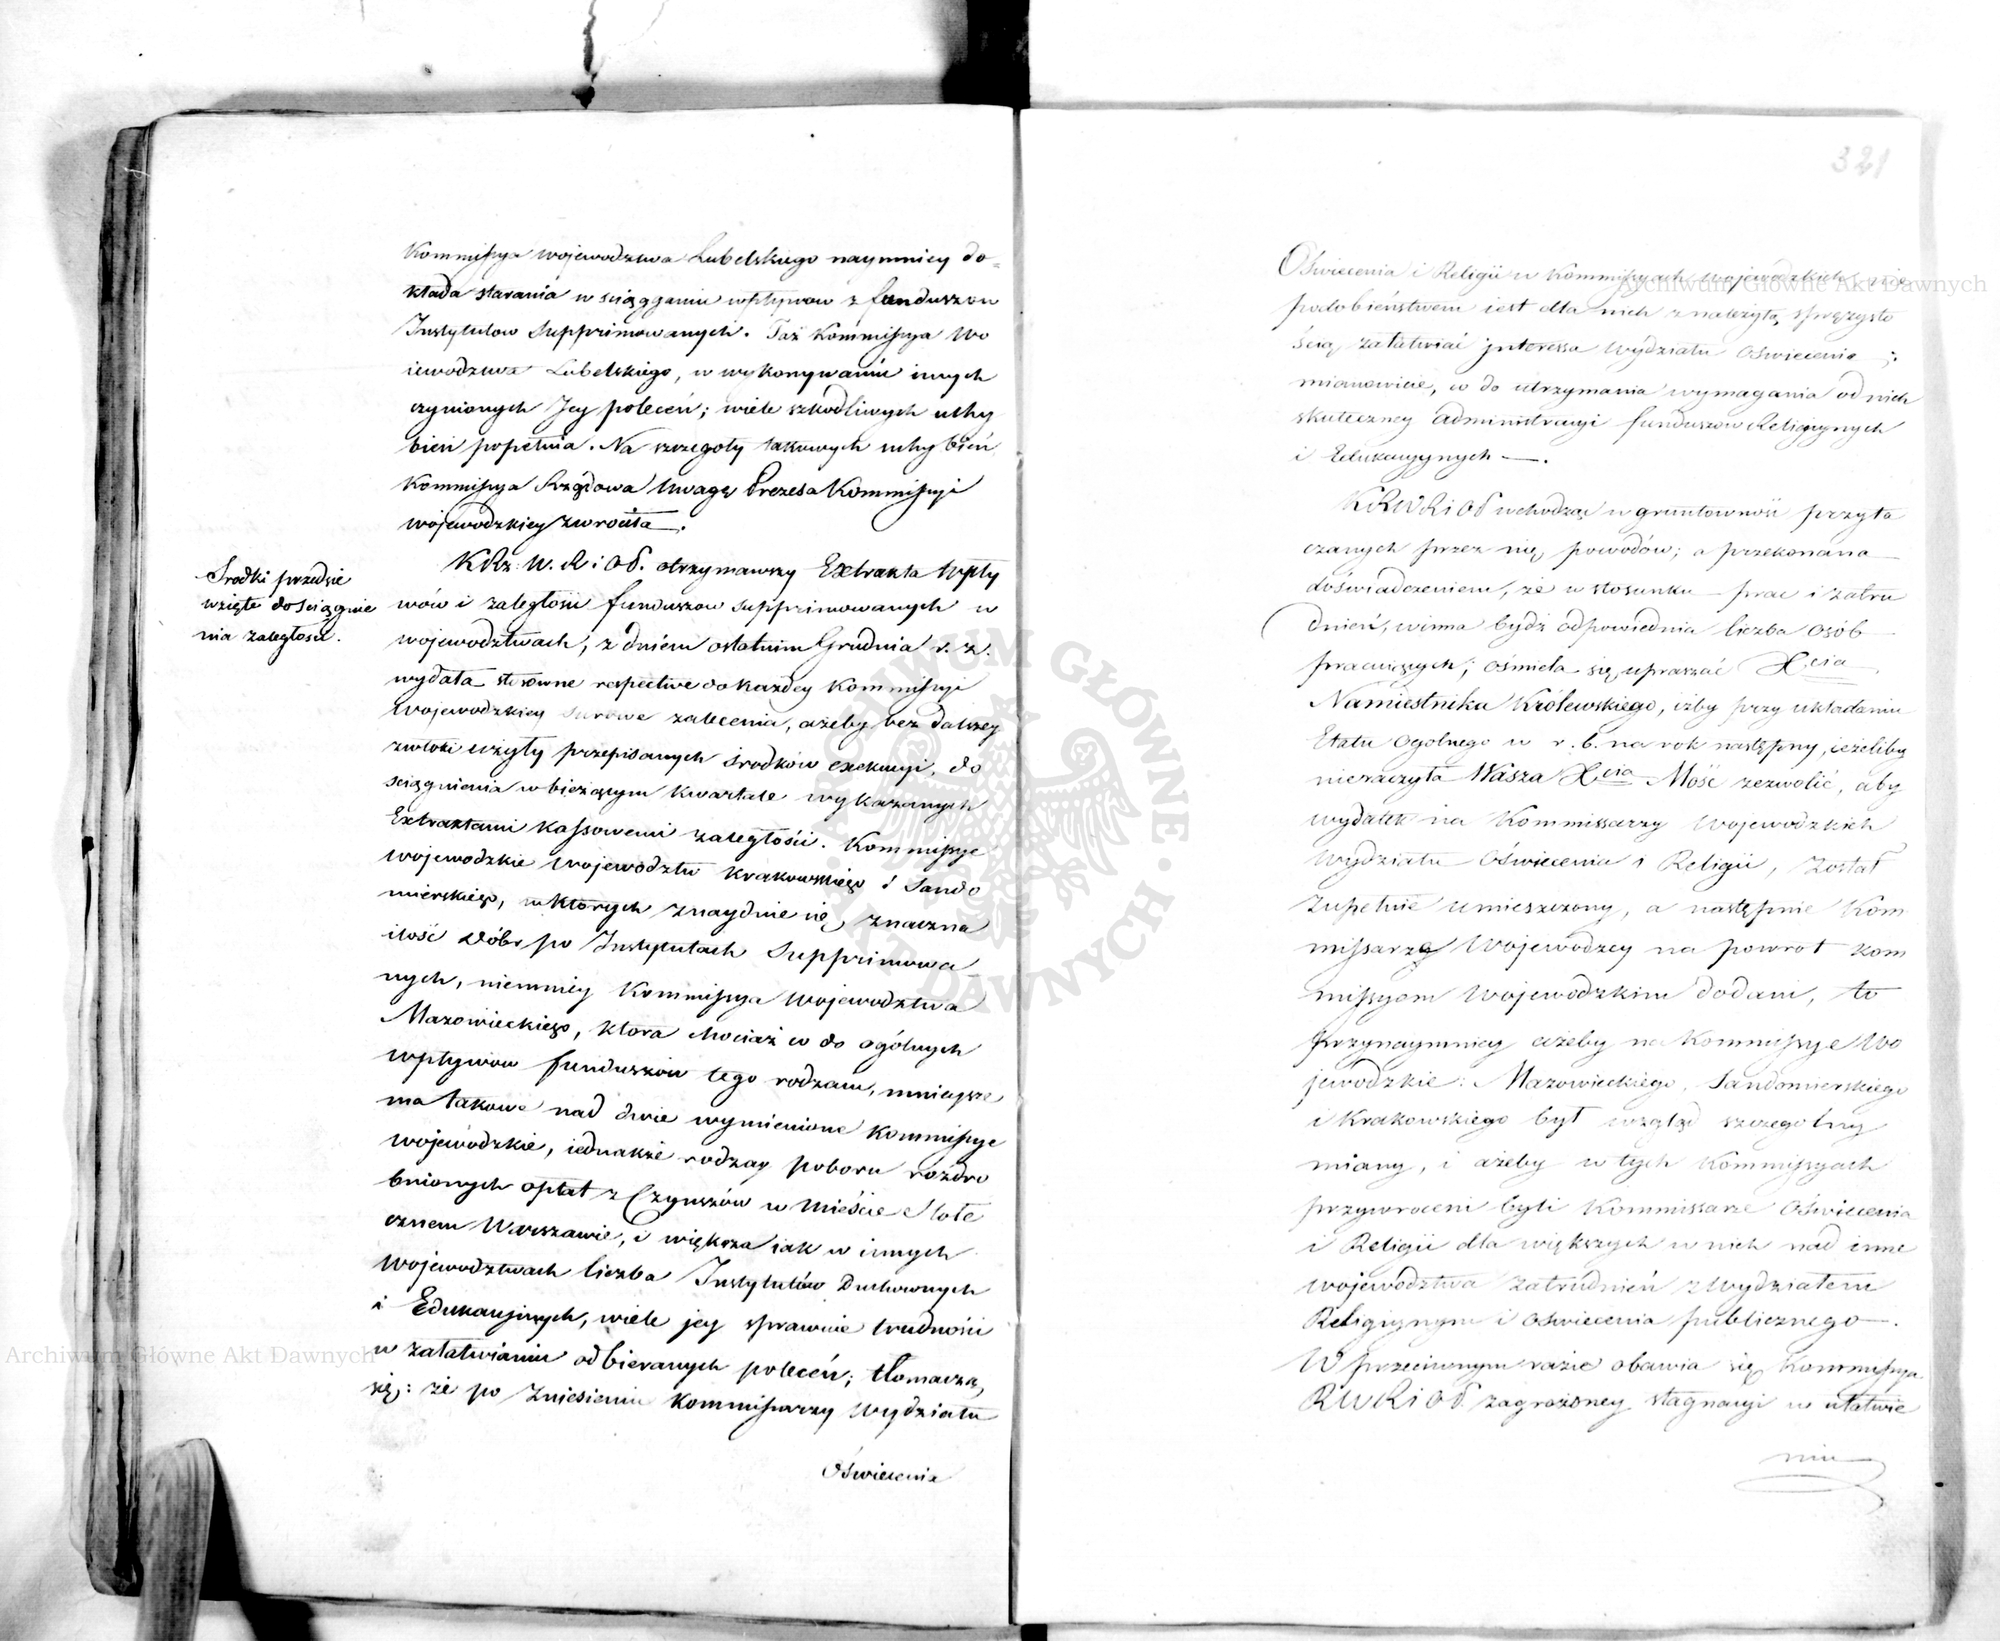 Kommissya wojewodztwa Lubelskiego naymniey do-
kłada starania w sciągganiu wpływow z funduszow
Instytutow Supprimowanych. Taż Kommissya Wo
iewodztwa Lubelskiego, w wykonywaniu innych
czynionych Jey poleceń; wiele szkodliwych uchy
bień popełnia. Na szczegoły takowych uchybień
Kommissya Rządowa Uwagę Prezesa Kommissyi
wojewodzkiey zwrociła.
Srodki przedsie
wzięte do sciągnie
nia zaległosci.
KRz. W. R i OP. otrzymawszy Extrakta wpły
wów i zaległosci funduszow supprimowanych w
wojewodztwach, z dniem ostatnim Grudnia r. z.
wydała stosowne respective do każdey Kommissyi
Wojewodzkiey surowe zalecenia, ażeby bez dalszey
zwłoki użyły przepisanych srodków exekucyi, do
sciągnienia w bieżącym kwartale wykazanych
Extraktami Kassowemi zaległości. Kommissye
wojewodzkie Wojewodztw Krakowskiego i Sando
mierskiego, w ktorych znayduie się, znaczna
ilość dóbr po Instytutach Supprimowa
nych, niemniey Kommissya Wojewodztwa
Mazowieckiego, ktora chociaż co do ogólnych
wpływow funduszów tego rodzaiu, mnieysze
ma takowe nad dwie wymienione Kommissye
wojewodzkie, iednakże rodzay poboru rozdro
bnionych opłat z Czynszów w mieście Stołe
cznem Warszawie, i większa iak w innych
Wojewodztwach liczba Instytutów Duchownych
i Edukacyjnych, wiele jey sprawuie trudności
w załatwianiu odbieranych poleceń; tłomaczą
się: że po zniesieniu Kommissarzy Wydziału
Oświecenia
321
Oświecenia i Religii w Kommissyach wojewodzkich, nie
podobieństwem iest dla nich z należytą sprężysto
ścią załatwiać interessa Wydziału Oświecenia;
mianowicie, co do utrzymania wymagania od nich
skuteczney administracyi funduszow Religiynych
i Edukacyynych —.
KRWRiOP wchodząc w gruntowność przyta
czanych przez nię powodów; a przekonana
doświadczeniem, że w stosunku prac i zatru
dnień, winna bydź odpowiednia liczba osób
pracuiących; ośmiela się upraszać Xcia
Namiestnika Królewskiego, iżby przy układaniu
Etatu ogolnego w r. b. na rok następny, ieżeliby
nieraczyła Wasza Xcia Mość zezwolić, aby
wydatek na Kommissarzy Wojewodzkich
Wydziału Oświecenia i Religii, został
zupełnie umieszczony, a następnie Kom
missarze Wojewodzcy na powrot Kom
missyom Wojewodzkim dodani, to
przynaymniey ażeby na Kommissye Wo
jewodzkie: Mazowieckiego, Sandomierskiego
i Krakowskiego był wzgląd szczegolny
miany, i ażeby w tych Kommissyach
przywroceni byli Kommissarze Oświecenia
i Religii dla większych w nich nad inne
wojewodztwa zatrudnień z Wydziałem
Religiynym i Oświecenia publicznego —.
W przeciwnym razie obawia się Kommissya
RWRiOP zagrożoney stagnacyi w ułatwie
niu